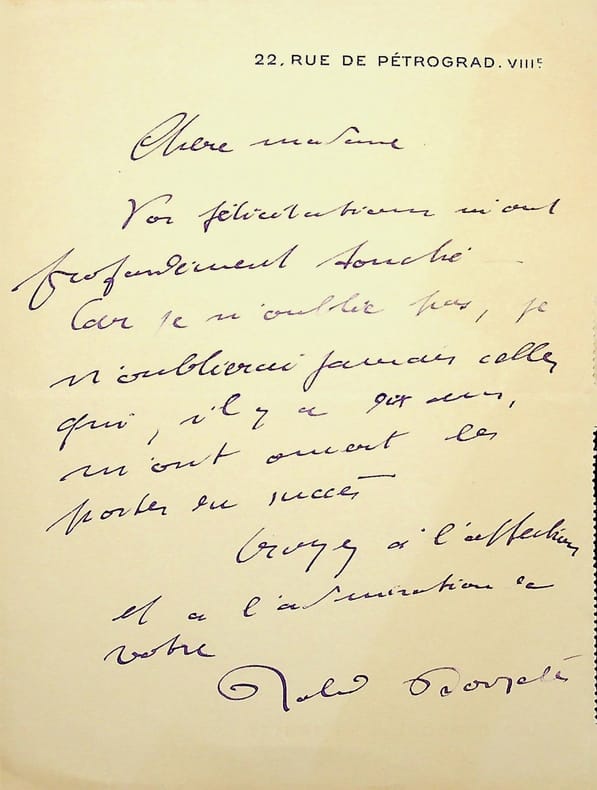 22, RUE DE PÉTROGRAD. VIIIᴱ
Chère madame
Vos félicitations m'ont
profondément touché
Car je n'oublie pas, je
n'oublierai jamais celles
qui, il y a dix ans,
m'ont ouvert les
portes du succès
Croyez à l'affection
et à l'admiration de
votre
Roland Dorgelès